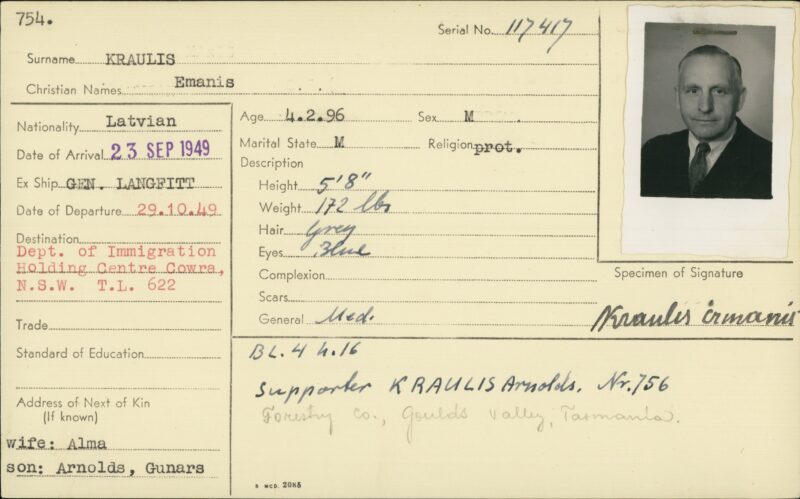 754.
Serial No. 117417
Surname KRAULIS
Christian Names Emanis
Nationality Latvian
Date of Arrival 23 SEP 1949
Ex Ship GEN. LANGFITT
Date of Departure 29.10.49
Destination
Dept. of Immigration
Holding Centre Cowra,
N.S.W. T.L. 622
Trade
Standard of Education
Address of Next of Kin
(If known)
wife: Alma
son: Arnolds, Gunars
Age 4.2.96 Sex M
Marital State M Religion prot.
Description
Height 5'8"
Weight 172 lbs
Hair Grey
Eyes Blue
Complexion
Scars
General Med.
Specimen of Signature
Kraulis Ermanis
BL. 4 h.16
Supporter KRAULIS Arnolds, Nr. 756
Forestry Co., Goulds Valley, Tasmania.
MCD. 2085